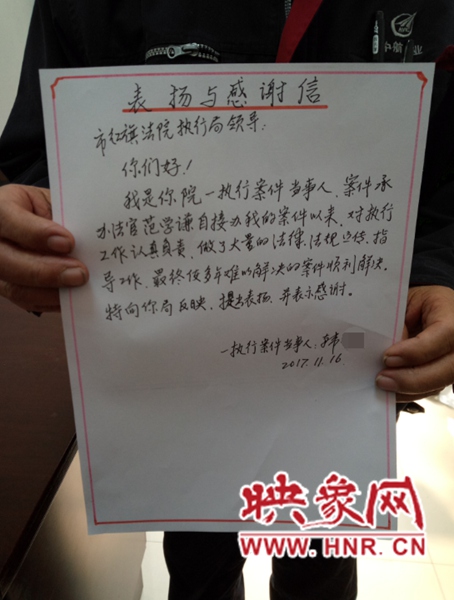 表扬与感谢信
市红旗法院执行局领导:
你们好!
我是你院一执行案件当事人,案件承
办法官范学谦自接办我的案件以来,对执行
工作认真负责,做了大量的法律、法规宣传、指
导工作,最终使多年难以解决的案件顺利解决。
特向你局反映,提出表扬,并表示感谢。
一执行案件当事人:
2017.11.16
映象网
WWW.HNR.CN